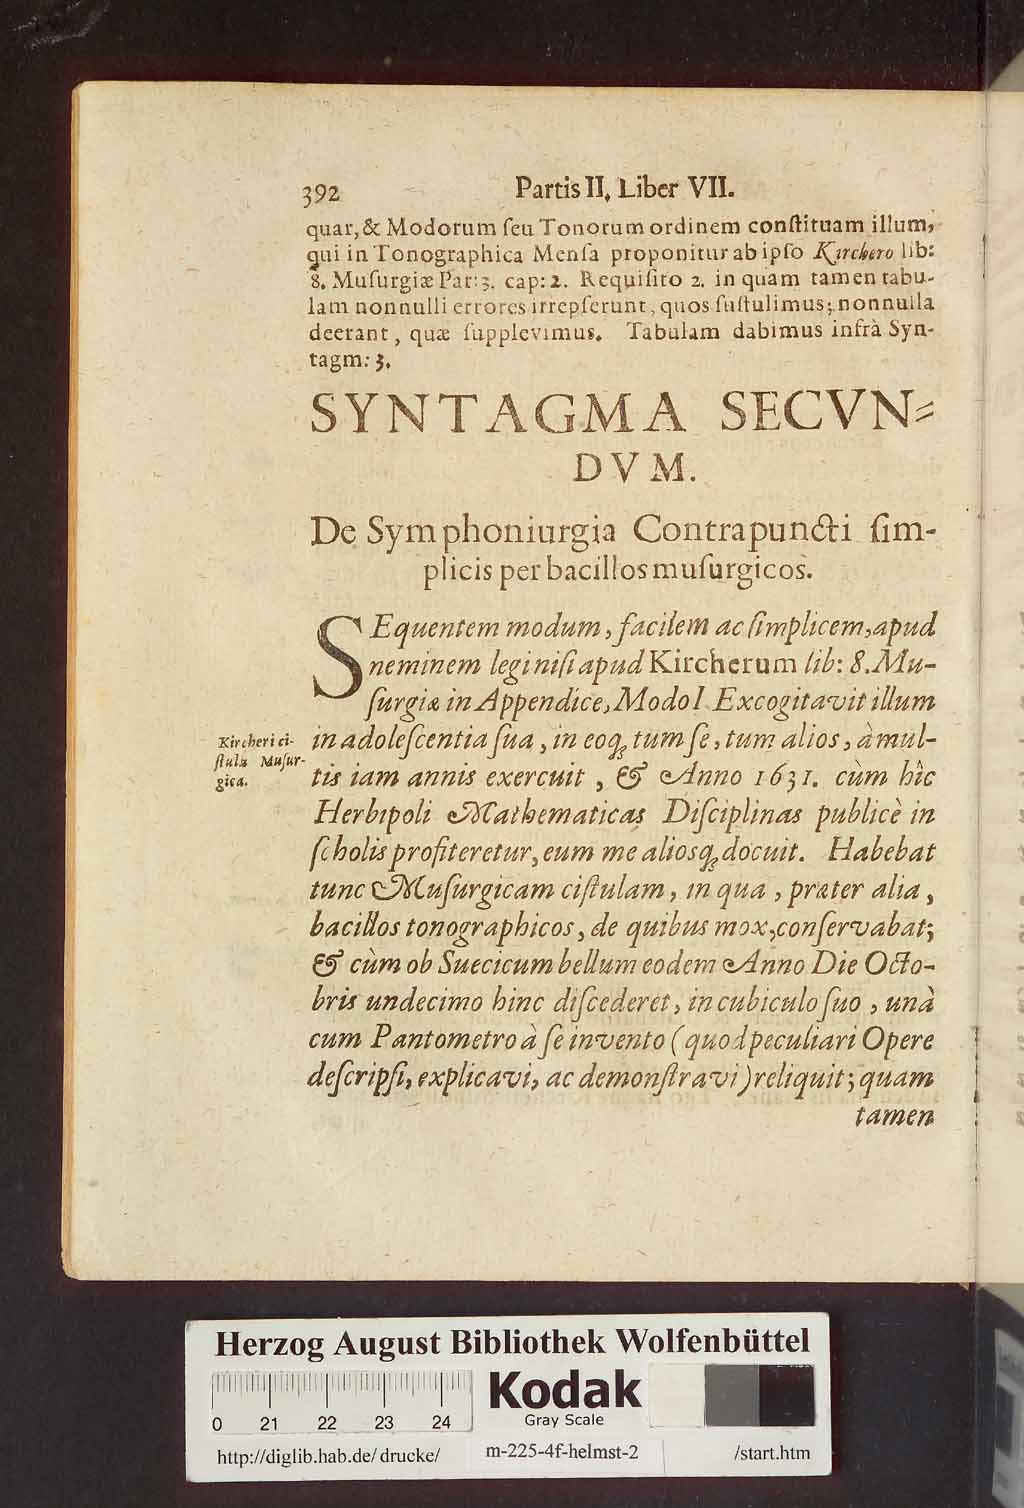 392 Partis II. Liber VII.
quar, & Modorum ſeu Tonorum ordinem conſtituam illum,
qui in Tonographica Menſa proponitur ab ipſo Kirchero lib:
8. Muſurgiæ Par: 3. cap: 2. Requiſito 2. in quam tamen tabu-
lam nonnulli errores irrepſerunt, quos ſuſtulimus; nonnulla
deerant, quæ ſupplevimus. Tabulam dabimus infrà Syn-
tagm: 3.
SYNTAGMA SECVN-
DVM.
De Symphoniurgia Contrapuncti ſim-
plicis per bacillos muſurgicos.
SEquentem modum, facilem ac ſimplicem, apud
neminem legi niſi apud Kircherum lib: 8. Mu-
ſurgiæ in Appendice, Modo I Excogitavit illum
Kircheri ci-
ſtula Muſur-
gica.
in adoleſcentia ſua, in eoq; tum ſe, tum alios, à mul-
tis iam annis exercuit, & Anno 1631. cùm hîc
Herbipoli Mathematicas Diſciplinas publicè in
ſcholis profiteretur, eum me aliosq; docuit. Habebat
tunc Muſurgicam ciſtulam, in qua, præter alia,
bacillos tonographicos, de quibus mox, conſervabat;
& cùm ob Suecicum bellum eodem Anno Die Octo-
bris undecimo hinc diſcederet, in cubiculo ſuo, unà
cum Pantometro à ſe invento (quod peculiari Opere
deſcripſi, explicavi, ac demonſtravi) reliquit; quam
tamen
Herzog August Bibliothek Wolfenbüttel
0 21 22 23 24
Kodak
Gray Scale
http://diglib.hab.de/drucke/ m-225-4f-helmst-2 /start.htm